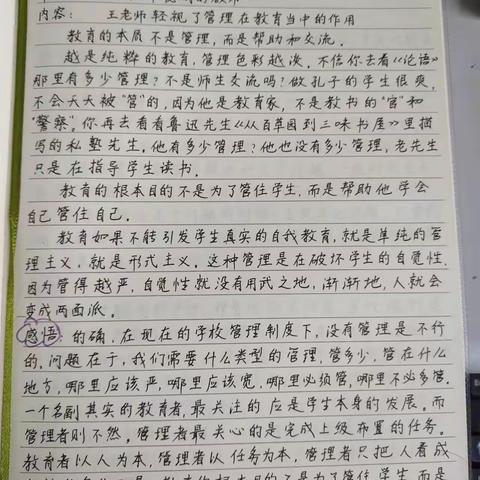 内容: 王老师轻视了管理在教育当中的作用
教育的本质不是管理,而是帮助和交流.
越是纯粹的教育,管理色彩越淡,不信你去看《论语》
那里有多少管理?不是师生交流吗?做孔子的学生很爽,
不会天天被“管”的,因为他是教育家,不是教书的“官”和
“警察”。你再去看看鲁迅先生《从百草园到三味书屋》里描
写的私塾先生,他有多少管理?他也没有多少管理,老先生
只是在指导学生读书.
教育的根本目的不是为了管住学生,而是帮助他学会
自己管住自己.
教育如果不能引发学生真实的自我教育,就是单纯的管
理主义,就是形式主义。这种管理是在破坏学生的自觉性.
因为管得越严,自觉性就没有用武之地,渐渐地,人就会
变成两面派.
感悟: 的确,在现在的学校管理制度下,没有管理是不行
的,问题在于,我们需要什么类型的管理,管多少,管在什么
地方,哪里应该严,哪里应该宽,哪里必须管,哪里不必多管.
一个名副其实的教育者,最关注的应是学生本身的发展。而
管理者则不然。管理者最关心的是完成上级布置的任务。
教育者以人为本,管理者以任务为本,管理者只把人看成